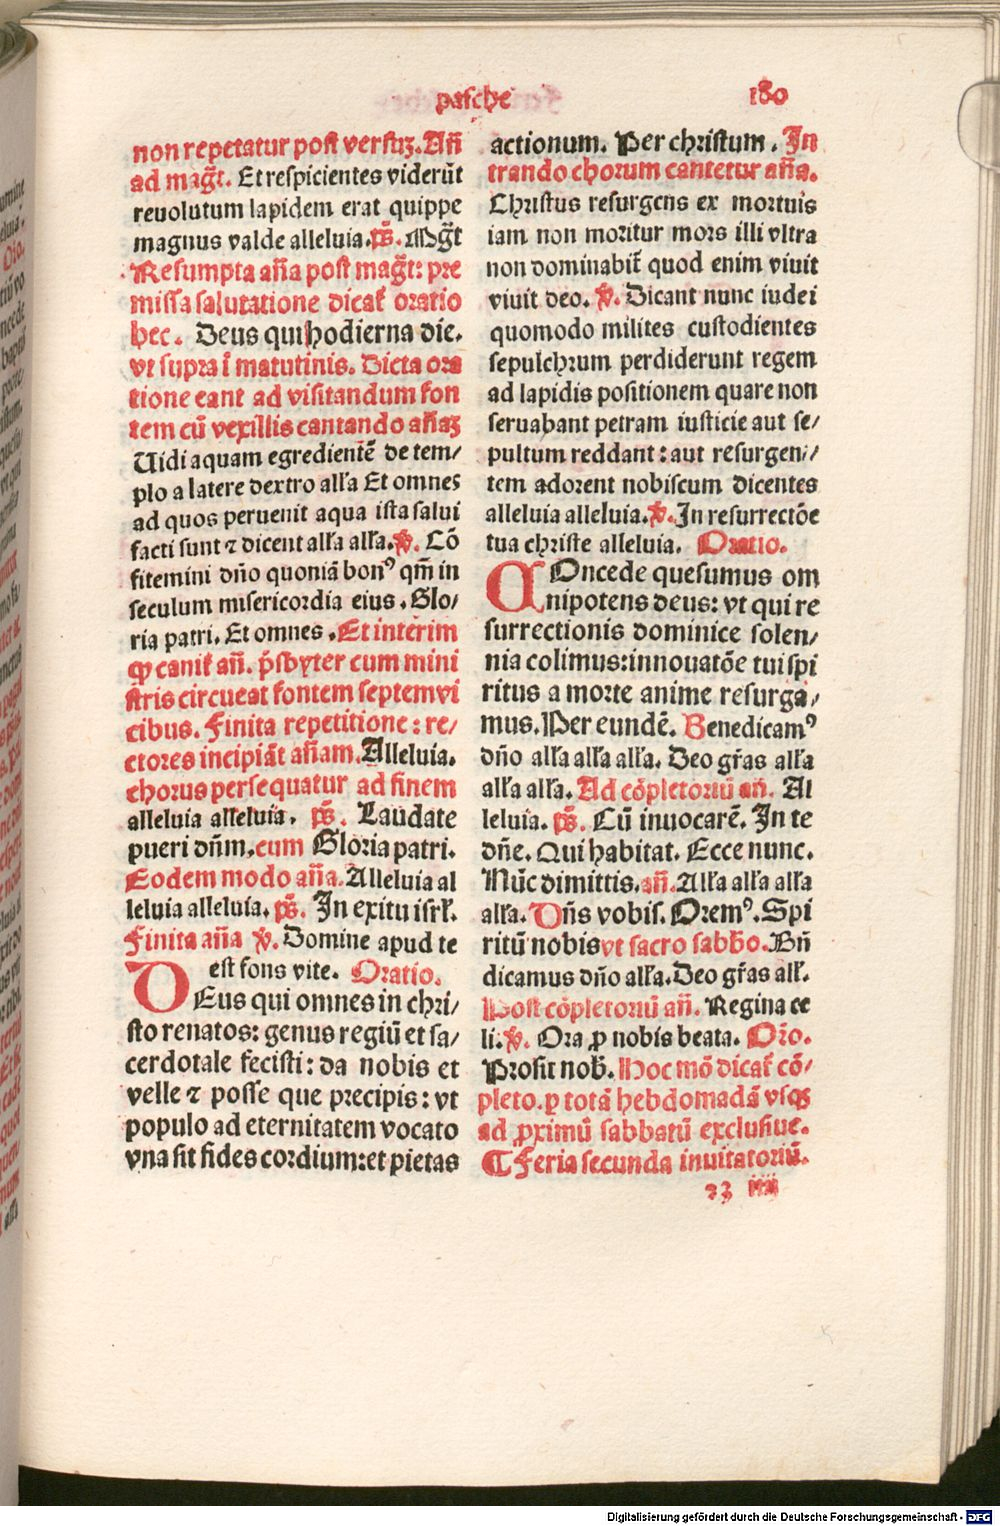 pasche
180
non repetatur post versuʒ. Añ
ad mag̃t. Et respicientes viderũt
reuolutum lapidem erat quippe
magnus valde alleluia. p̃s. Mg̃t
Resumpta aña post mag̃t: pre
missa salutatione dicat᷑ oratio
hec. Deus qui hodierna die.
vt supra ĩ matutinis. Dicta ora
tione eant ad visitandum fon
tem cũ vexillis cantando añaʒ
Uidi aquam egredientẽ de tem⸗
plo a latere dextro alła Et omnes
ad quos peruenit aqua ista salui
facti sunt ⁊ dicent alła alła. ℣. Cõ
fitemini dño quoniã bonꝰ qm̃ in
seculum misericordia eius. Glo⸗
ria patri. Et omnes. Et interim
ꝙ canit᷑ añ. p̃sbyter cum mini
stris circueat fontem septemvi
cibus. Finita repetitione: re⸗
ctores incipiãt añam. Alleluia.
chorus persequatur ad finem
alleluia alleluia. p̃s. Laudate
pueri dñm, cum Gloria patri.
Eodem modo aña. Alleluia al
leluia alleluia. p̃s. In exitu isrł.
Finita aña ℣. Domine apud te
est fons vite. Oratio.
DEus qui omnes in chri⸗
sto renatos: genus regiũ et sa⸗
cerdotale fecisti: da nobis et
velle ⁊ posse que precipis: vt
populo ad eternitatem vocato
vna sit fides cordium: et pietas
actionum. Per christum. In
trando chorum cantetur aña.
Christus resurgens ex mortuis
iam non moritur mors illi vltra
non dominabit᷑ quod enim viuit
viuit deo. ℣. Dicant nunc iudei
quomodo milites custodientes
sepulchrum perdiderunt regem
ad lapidis positionem quare non
seruabant petram iusticie aut se⸗
pultum reddant: aut resurgen⸗
tem adorent nobiscum dicentes
alleluia alleluia. ℣. In resurrectõe
tua christe alleluia. Oratio.
COncede quesumus om
nipotens deus: vt qui re
surrectionis dominice solen⸗
nia colimus: innouatõe tui spi
ritus a morte anime resurga⸗
mus. Per eundẽ. Benedicamꝰ
dño alła alła alła. Deo gr̃as alła
alła alła. Ad cõpletoriũ añ. Al
leluia. p̃s. Cũ inuocarẽ. In te
dñe. Qui habitat. Ecce nunc.
Nũc dimittis. añ. Alła alła alła
alła. Dñs vobis. Oremꝰ. Spi
ritũ nobis vt sacro sabb̃o. Bñ
dicamus dño alła. Deo gr̃as alł.
Post cõpletoriũ añ. Regina ce
li. ℣. Ora ꝓ nobis beata. Or̃o.
Prosit nob̃. Hoc mõ dicat᷑ cõ⸗
pleto. ꝑ totã hebdomadã vsqꝫ
ad ꝓximũ sabbatũ exclusiue.
¶ Feria secunda inuitatoriũ.
iiij
Digitalisierung gefördert durch die Deutsche Forschungsgemeinschaft - DFG